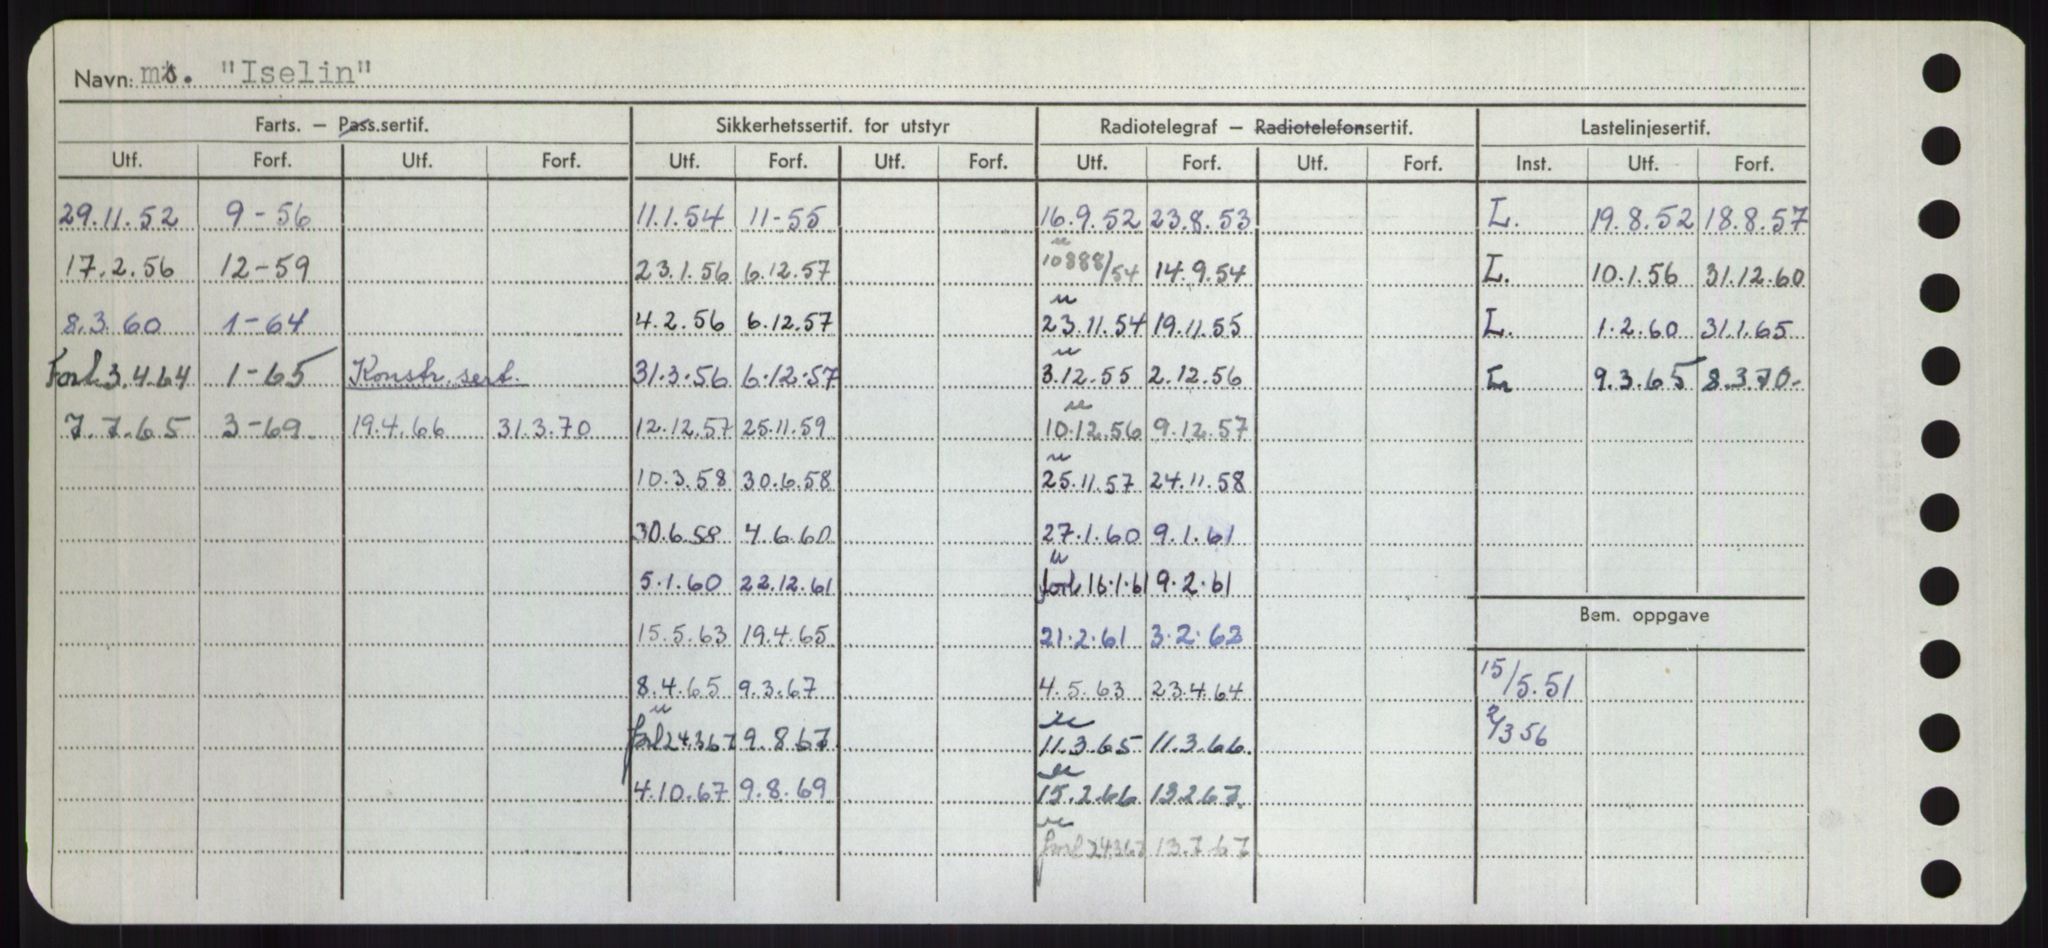 Navn: ms. "Iselin"
Farts. — Pass.sertif. Sikkerhetssertif. for utstyr Radiotelegraf — Radiotelefonsertif. Lastelinjesertif.
Utf. Forf. Utf. Forf. Utf. Forf. Utf. Forf. Utf. Forf. Utf. Forf. Inst. Utf. Forf.
29.11.52 9-56 11.1.54 11-55 16.9.52 23.8.53 L. 19.8.52 18.8.57
17.2.56 12-59 23.1.56 6.12.57 u 10888/54 14.9.54 L. 10.1.56 31.12.60
8.3.60 1-64 4.2.56 6.12.57 u 23.11.54 19.11.55 L. 1.2.60 31.1.65
Forl. 3.4.64 1-65 Konstr. sert. 31.3.56 6.12.57 u 3.12.55 2.12.56 L 9.3.65 8.3.70-
7.7.65 3-69 19.4.66 31.3.70 12.12.57 25.11.59 u 10.12.56 9.12.57
10.3.58 30.6.58 u 25.11.57 24.11.58
30.6.58 4.6.60 27.1.60 9.1.61
5.1.60 22.12.61 u forl 16.1.61 9.2.61
Bem. oppgave
15.5.63 19.4.65 21.2.61 3.2.62
8.4.65 9.3.67 4.5.63 23.4.64 15/5.51
u forl 24.3.67 9.8.67 u 11.3.65 11.3.66. 2/3 56
4.10.67 9.8.69 u 15.2.66 13.2.67.
u forl 24.3.67 13.7.67